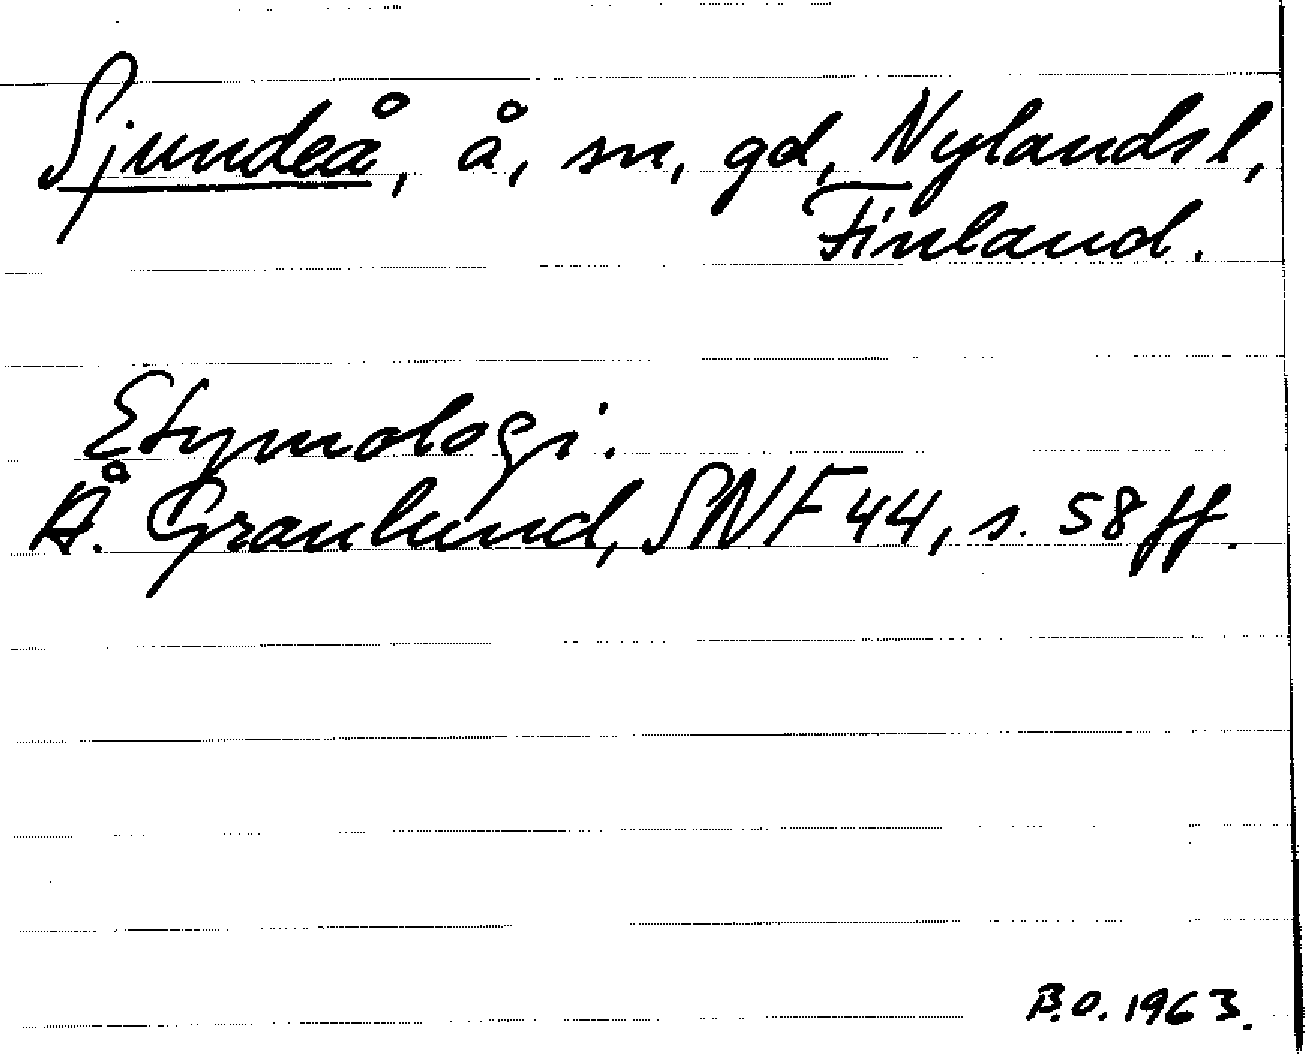 Sjundeå, å, sn, gd, Nylands l,
Finland.
Etymologi.
Å. Granlund, SNF 44, s. 58 ff.
B.O. 1963.